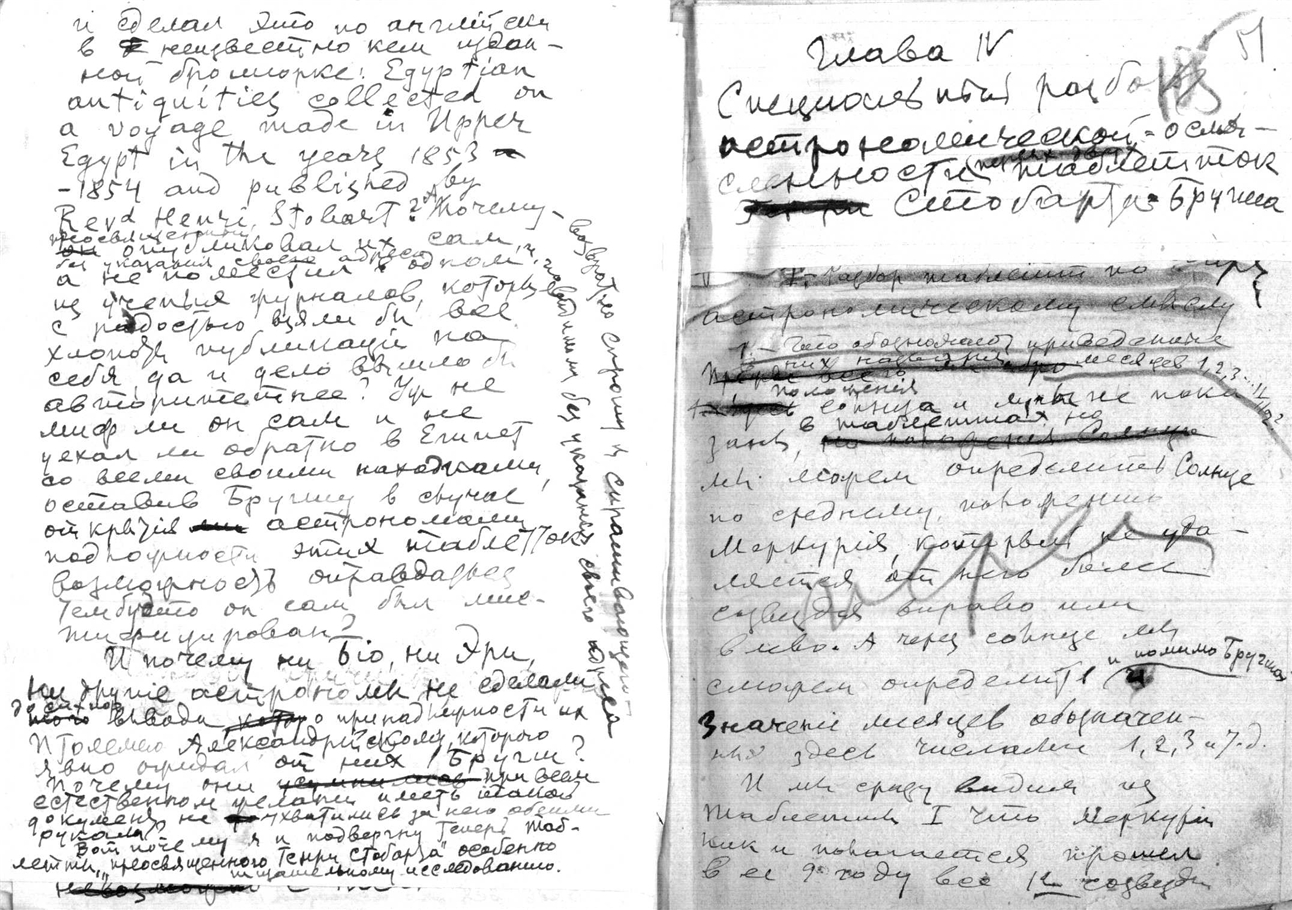 и сделал это по английски
в неизвестно кем издан-
ной брошюрке: Egyptian
antiquities collected on
a voyage made in Upper
Egypt in the years 1853
-1854 and published by
Revd Henri Stobart. Почему-
преосвященный
он опубликовал их сам,
без указания своего адреса
а не поместил в одном
из ученых журналов, которые
с радостью взяли бы все
хлопоты публикации на
себя, да и дело вышло бы
авторитетнее? Уж не
миф ли он сам и не
уехал ли обратно в Египет
со всеми своими находками,
оставив Бругшу в случае
открытия астрономами
подложности этих таблеток
возможность оправдаться
тем будто он сам был мис-
тифицирован?
И почему ни Био, ни Эри,
ни другие астрономы не сделали
до сих пор
вывода о принадлежности их
Птолемею Александрийскому, которого
явно ожидал от них Бругш?
Почему они при всем
естественном желании иметь такой
документ не ухватились за него обеими
руками?
Вот почему я и подвергну теперь таб-
летки „преосвященного Генри Стобарта" особенно
тщательному исследованию.
возвратно строгому и спрашивающего
и, повидимому без указания своего адреса
51
Глава IV
Специальный разбор
астрономической осмыс-
ленности первых двух таблеток
Стобарта-Бругша
Разбор таблетт по
астрономическому смыслу
1. Что обозначают приведенные
в них названия месяцев 1, 2, 3... 11, 12?
положения
Солнца и луны не пока
заны в таблетках но
мы можем определить Солнце
по среднему положению
Меркурия, который не уда-
ляется от него более
созвездия вправо или
влево. А через солнце мы
сможем определить и помимо Бругша
Значение месяцев обозначен-
ных здесь числами 1, 2, 3 и т. д.
И мы сразу видим из
таблетки I что Меркурий
как и полагается прошел
в ее 9м году все 12 созвездий